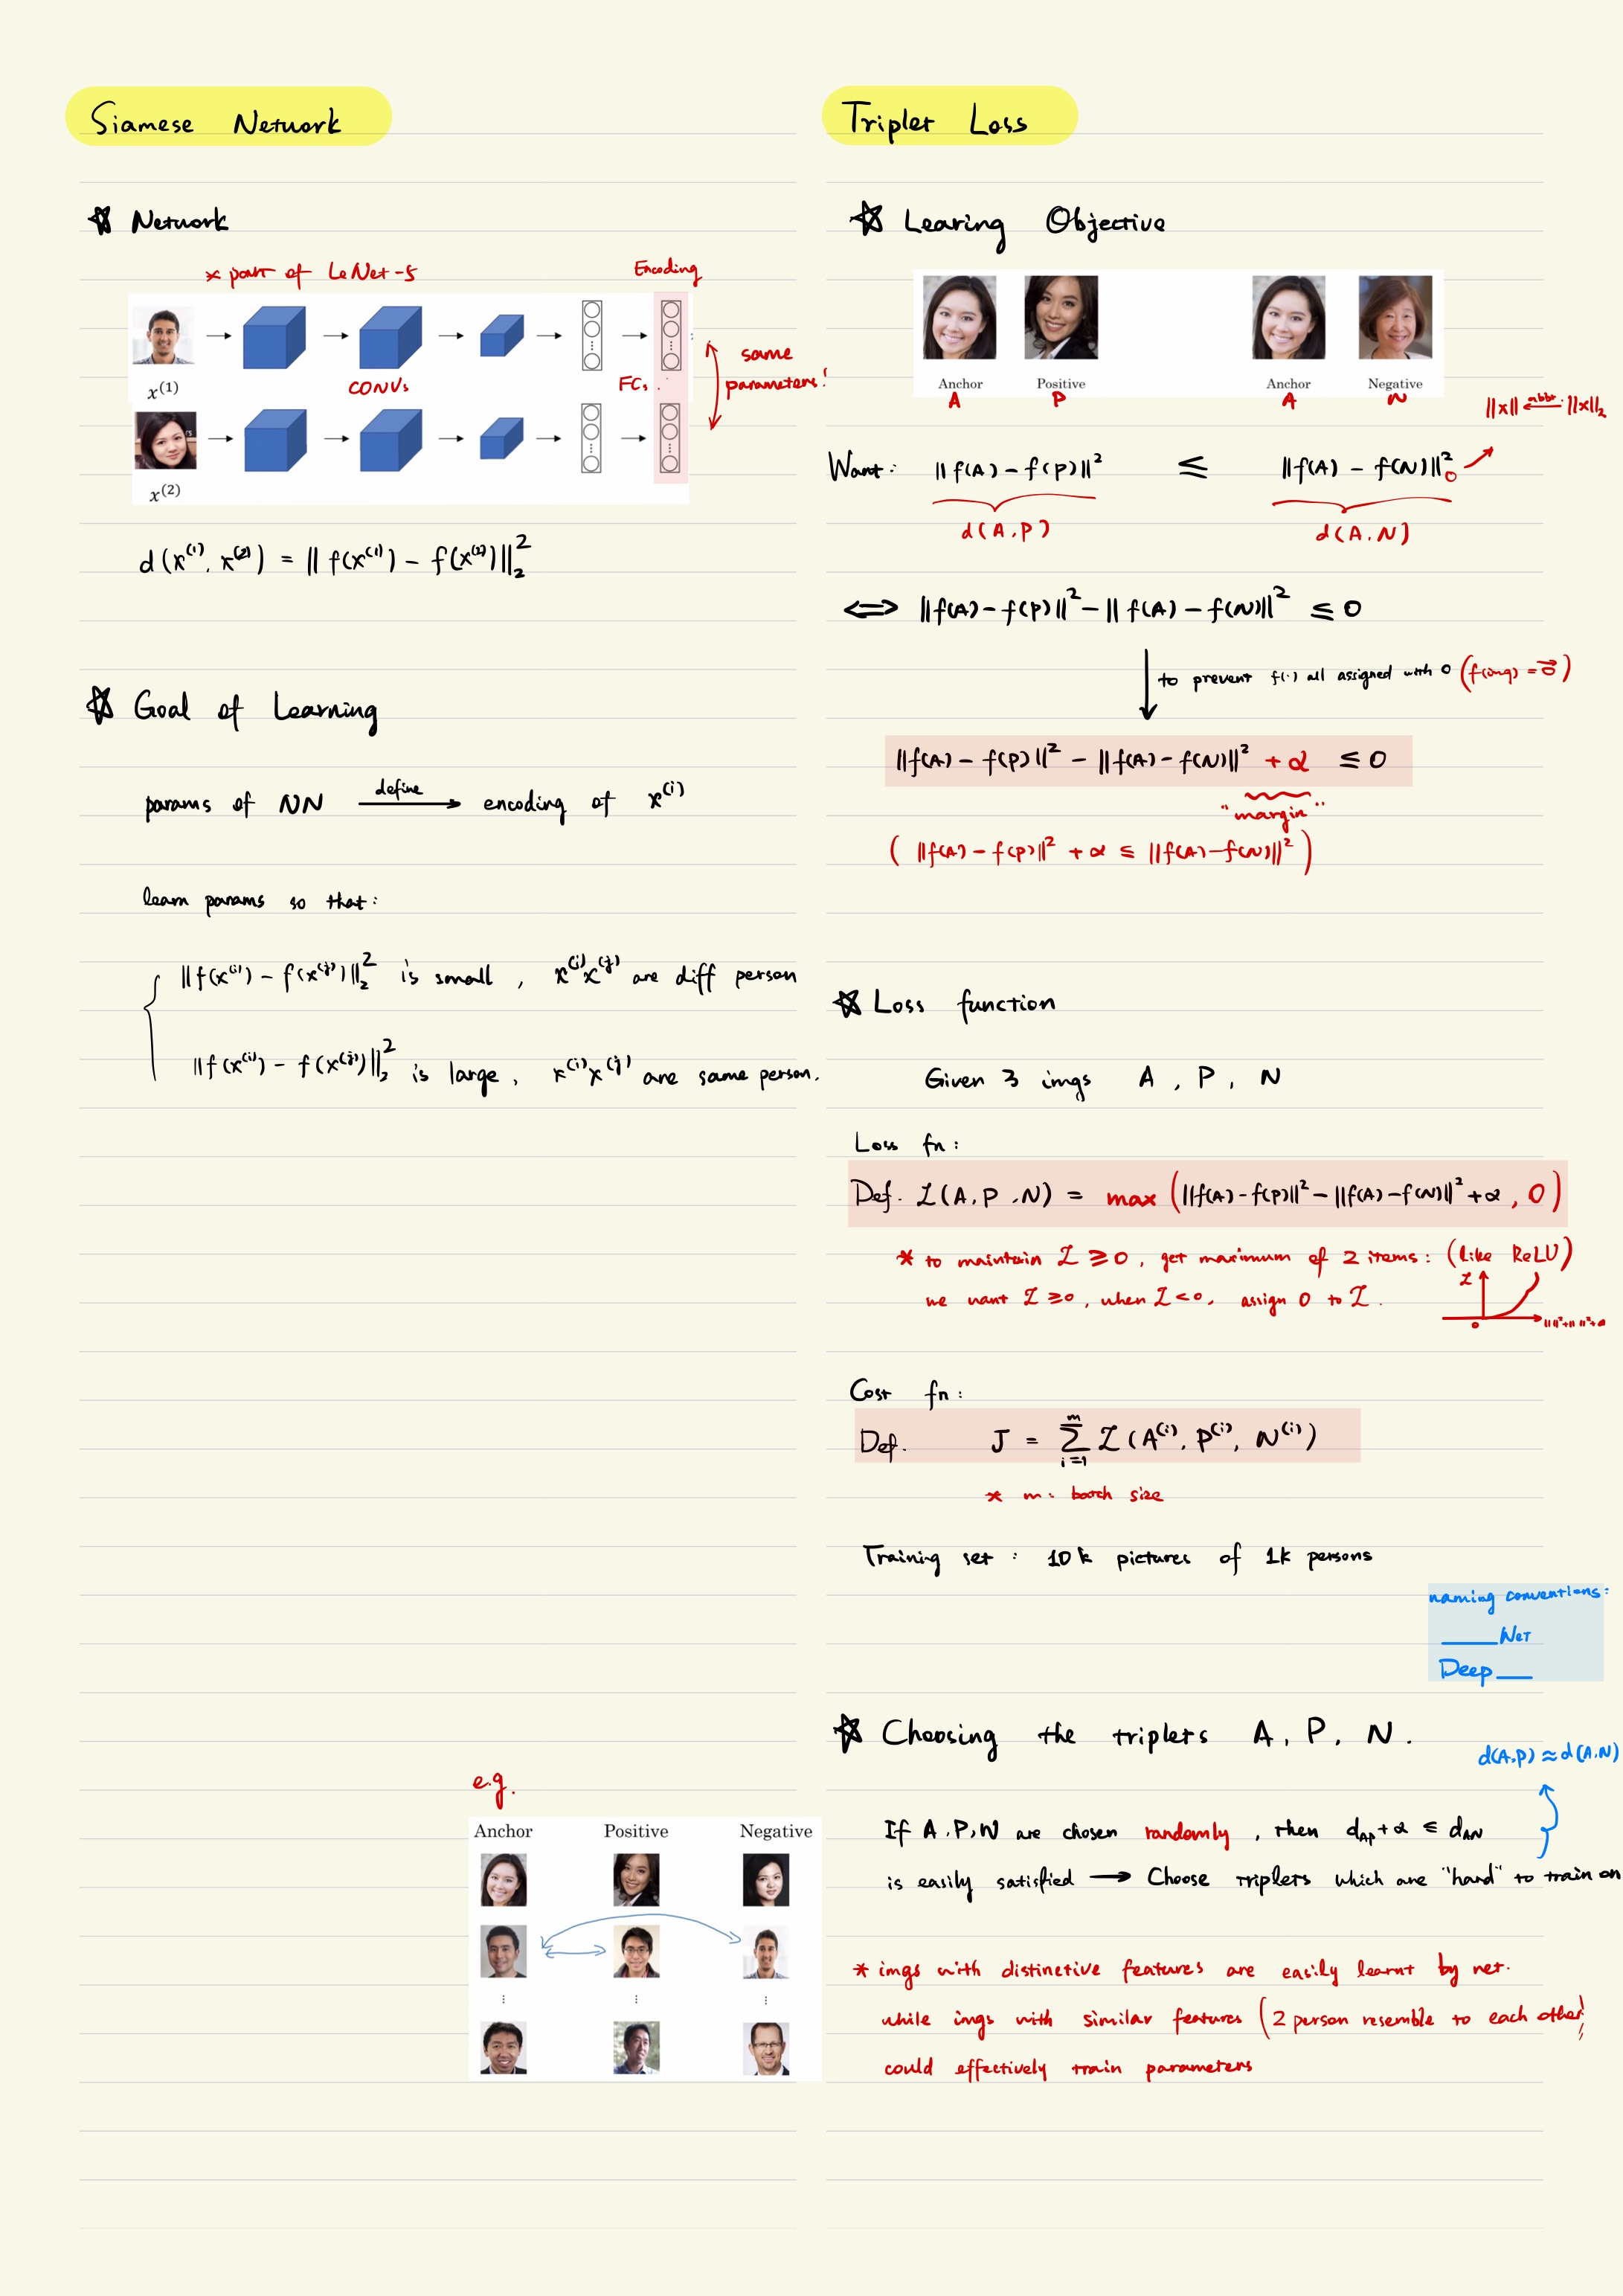 Siamese Network
☆ Network
* part of LeNet-5
Encoding
x⁽¹⁾
CONVs
FCs
same
parameters!
x⁽²⁾
d(x⁽¹⁾, x⁽²⁾) = ||f(x⁽¹⁾) - f(x⁽²⁾)||₂²
☆ Goal of Learning
params of NN —define→ encoding of x⁽ⁱ⁾
learn params so that:
||f(x⁽ⁱ⁾) - f(x⁽ʲ⁾)||₂² is small, x⁽ⁱ⁾x⁽ʲ⁾ are diff person
||f(x⁽ⁱ⁾) - f(x⁽ʲ⁾)||₂² is large, x⁽ⁱ⁾x⁽ʲ⁾ are same person.
e.g.
Anchor Positive Negative
Triplet Loss
☆ Learing Objective
Anchor Positive Anchor Negative
A P A N
||x|| ←abbr. ||x||₂
Want: ||f(A) - f(P)||² ≤ ||f(A) - f(N)||²
d(A,P) d(A,N)
⟺ ||f(A) - f(P)||² - ||f(A) - f(N)||² ≤ 0
to prevent f(·) all assigned with 0 (f(img) = 0⃗)
||f(A) - f(P)||² - ||f(A) - f(N)||² + α ≤ 0
"margin"
(||f(A) - f(P)||² + α ≤ ||f(A) - f(N)||²)
☆ Loss function
Given 3 imgs A, P, N
Loss fn:
Def. L(A, P, N) = max(||f(A) - f(P)||² - ||f(A) - f(N)||² + α, 0)
* to maintain L ≥ 0, get maximum of 2 items: (like ReLU)
we want L ≥ 0, when L < 0, assign 0 to L.
L
0 || ||²+|| ||²+α
Cost fn:
Def. J = Σᵢ₌₁ᵐ L(A⁽ⁱ⁾, P⁽ⁱ⁾, N⁽ⁱ⁾)
* m: batch size
Training set: 10k pictures of 1k persons
naming conventions:
____Net
Deep____
☆ Choosing the triplets A, P, N.
d(A,P) ≈ d(A,N)
If A,P,N are chosen randomly, then d_AP + α ≤ d_AN
is easily satisfied → Choose triplets which are "hard" to train on
* imgs with distinctive features are easily learnt by net.
while imgs with similar features (2 person resemble to each other)
could effectively train parameters